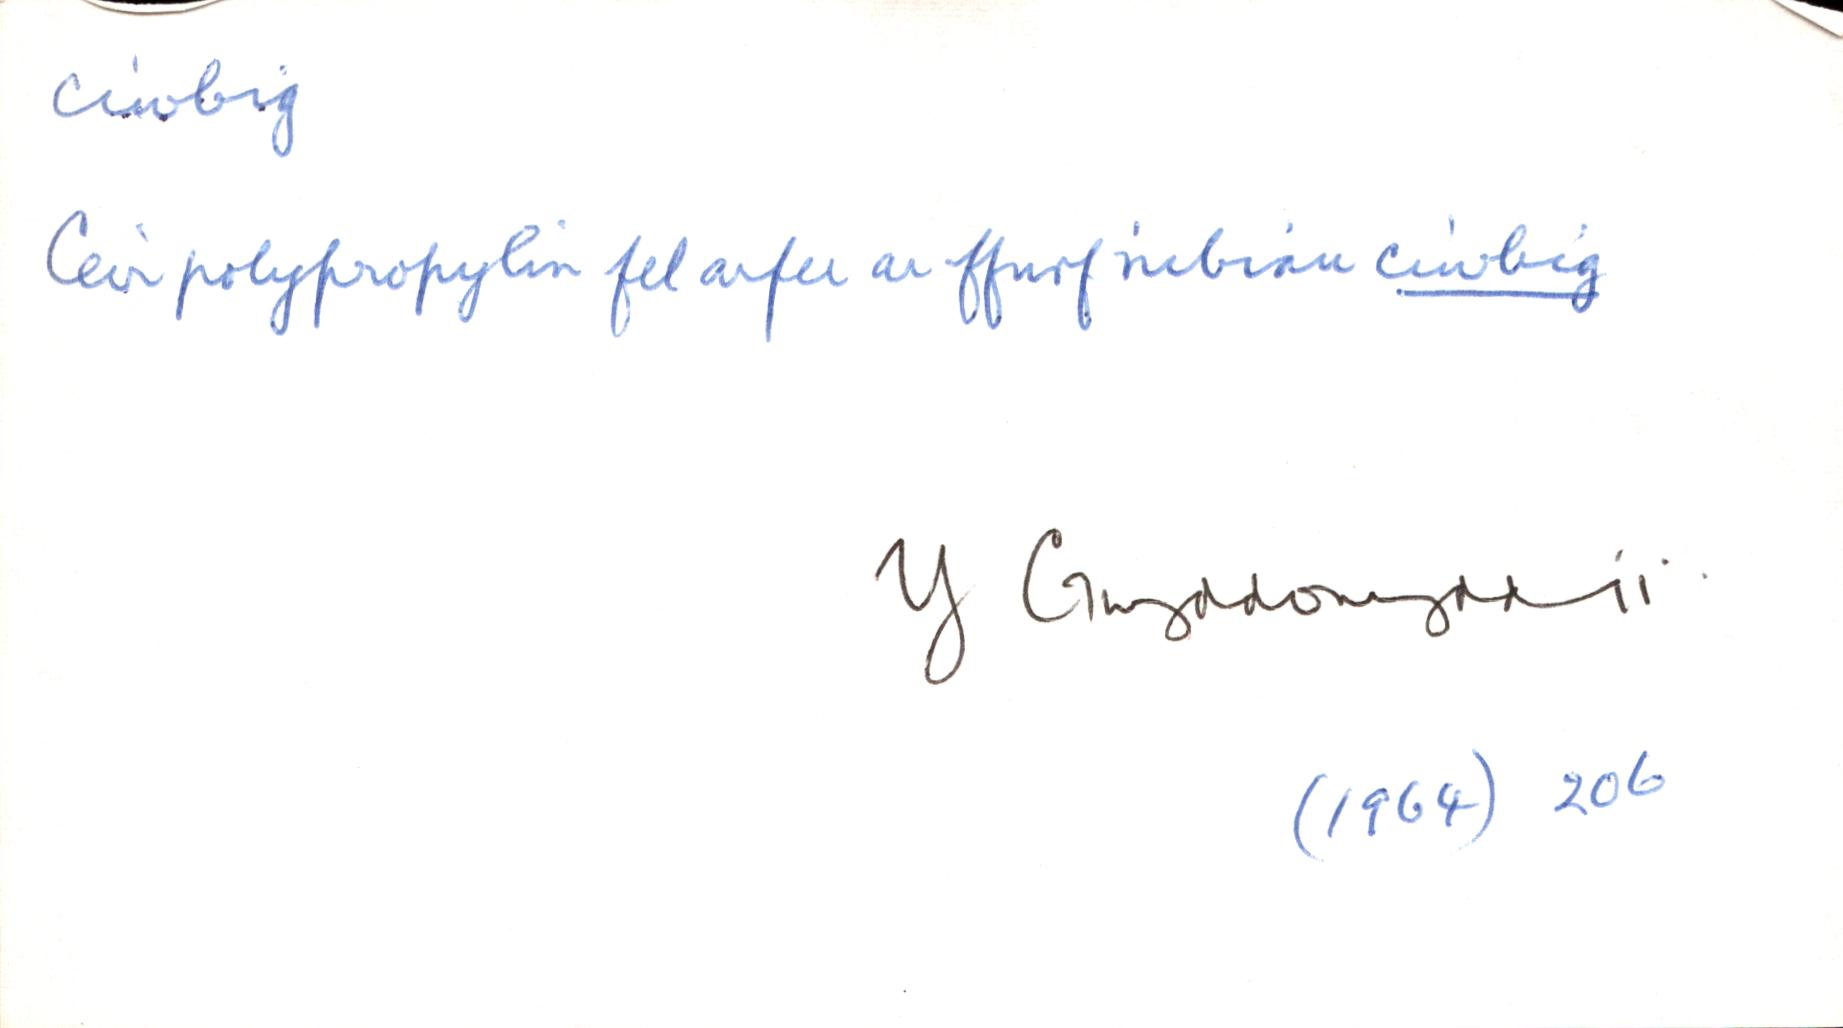 ciwbig
Ceir polypropylin fel arfer ar ffurf rubiau ciwbig
Y Gwyddonydd ii.
(1964) 206